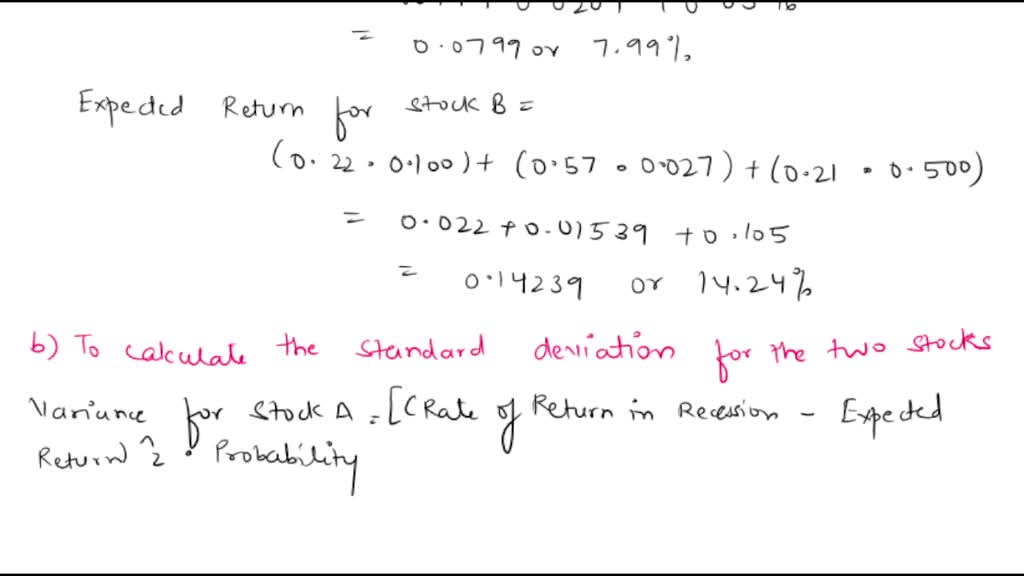 = 0.0799 or 7.99%
Expected Return for stock B =
(0.22 • 0.100) + (0.57 • 0.027) + (0.21 • 0.500)
= 0.022 + 0.01539 + 0.105
= 0.14239 or 14.24%
b) To calculate the standard deviation for the two stocks
Variance for Stock A = [(Rate of Return in Recession - Expected
Return)^2 • Probability